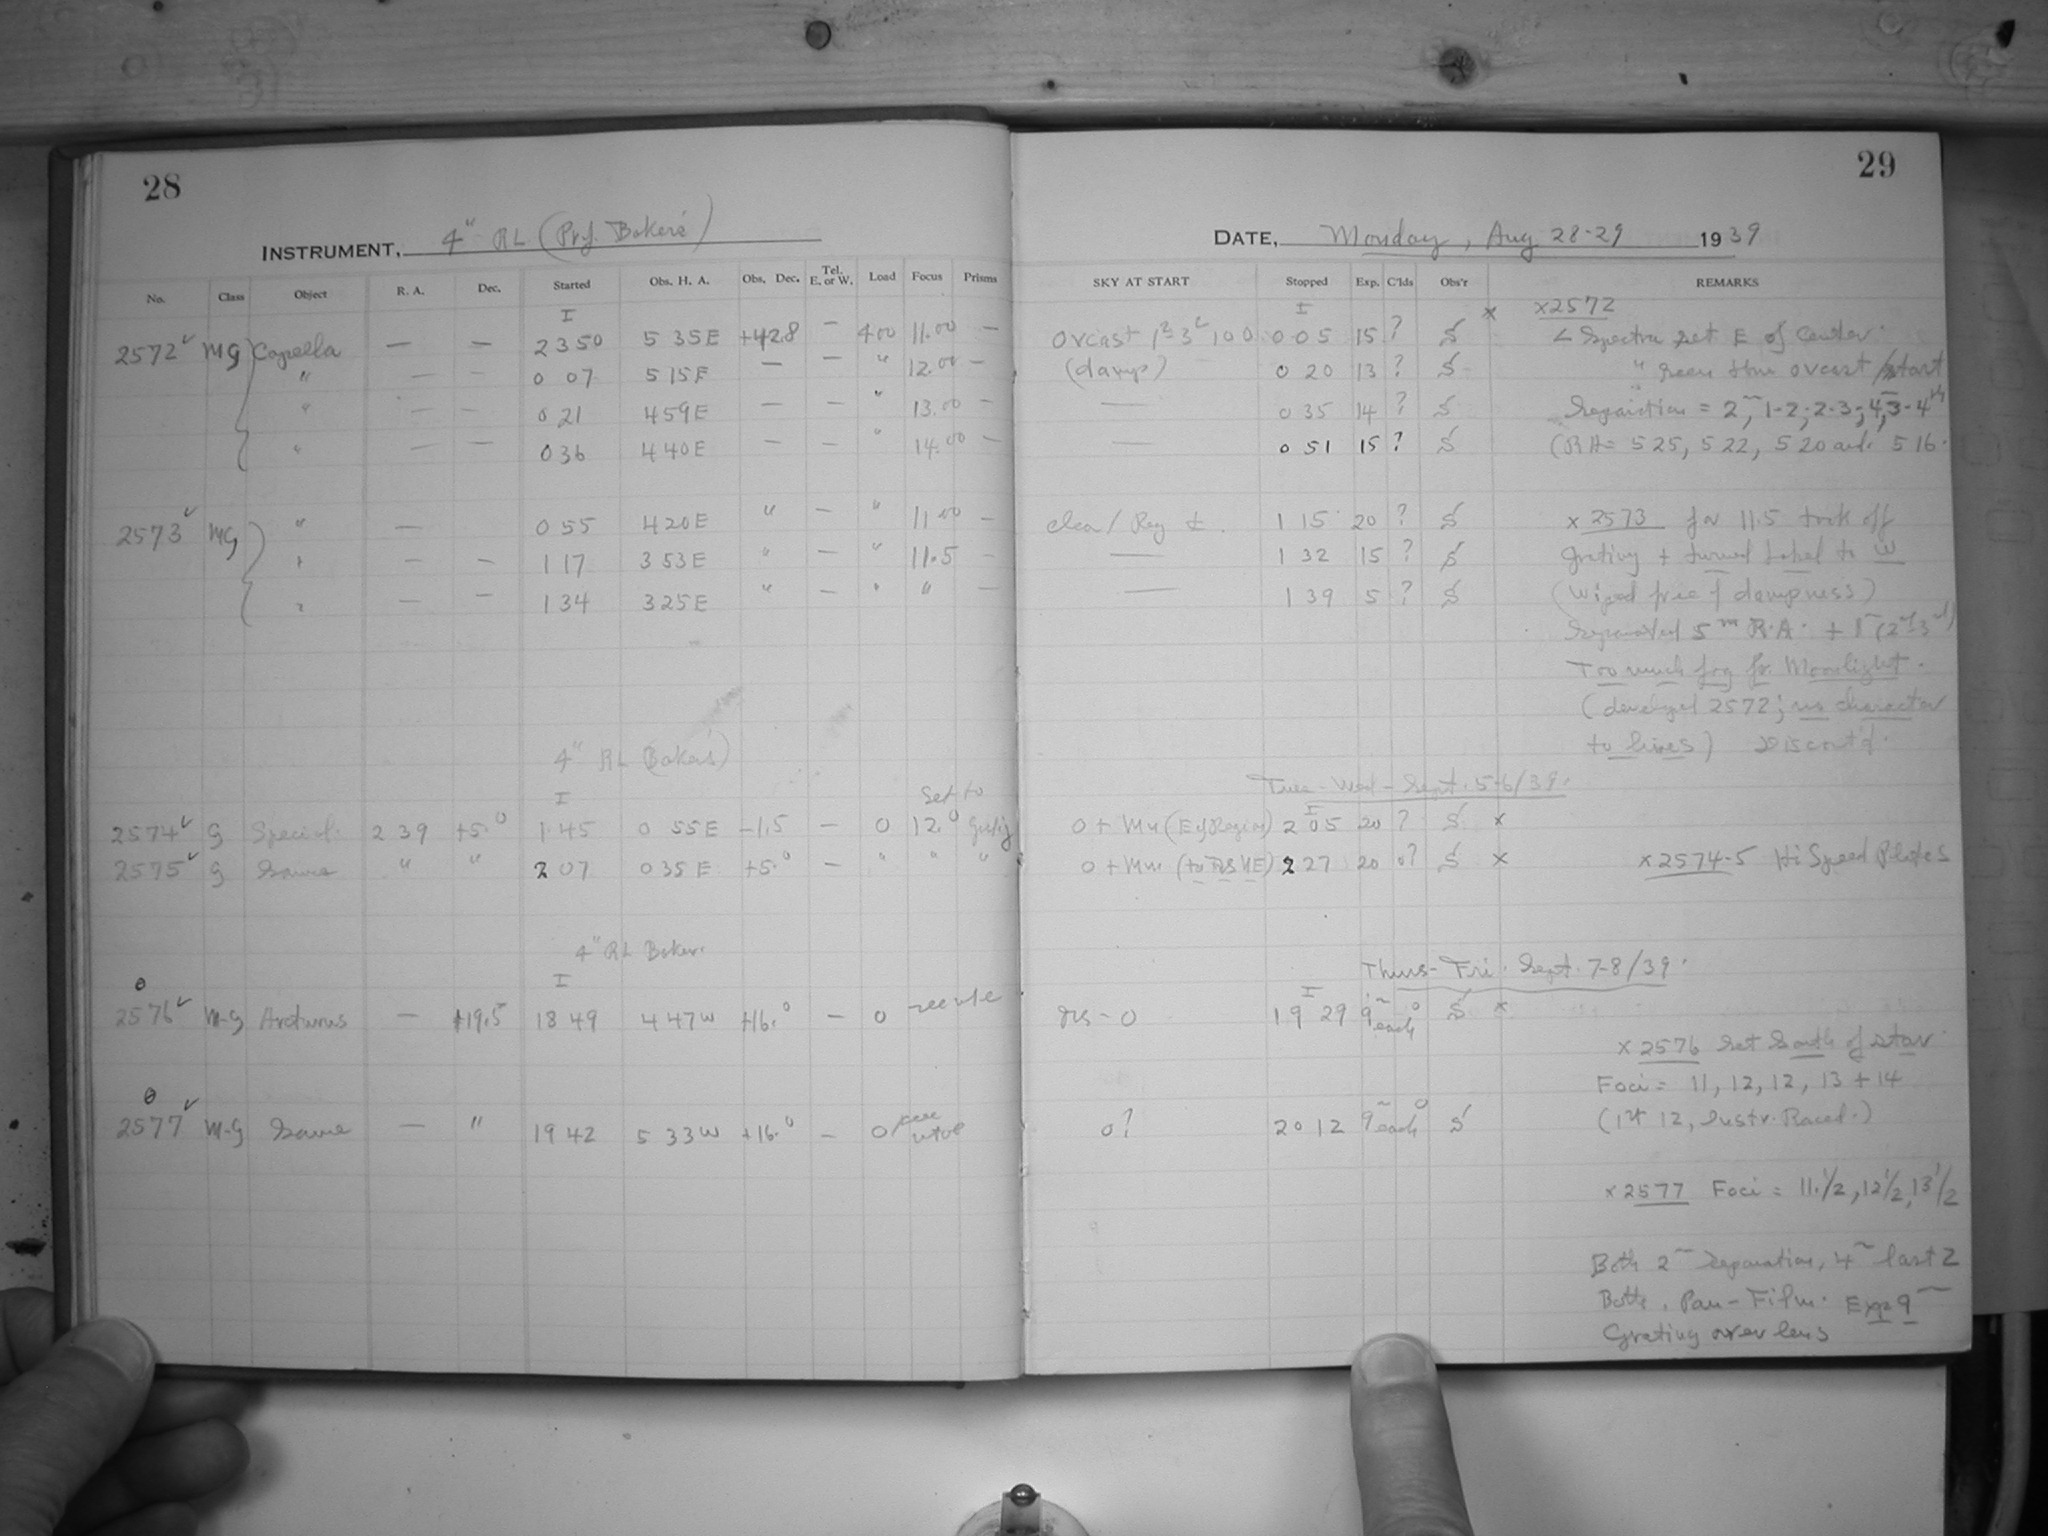 28
INSTRUMENT, 4" RL (Prof. Baker's)
No. Class Object R. A. Dec. Started Obs. H. A. Obs. Dec. Tel. E. or W. Load Focus Prisms
I
2572 ✓ MG Capella — — 23 50 5 35 E +42.8 — 400 11.00 —
" — — 0 07 5 15 E — — " 12.00 —
" — — 0 21 4 59 E — — " 13.00 —
" — — 0 36 4 40 E — — " 14.00 —
2573 ✓ MG " — 0 55 4 20 E " — " 11.00 —
" — — 1 17 3 53 E " — " 11.5 —
" — — 1 34 3 25 E " — " " —
4" RL (Baker's)
I Set to
2574 ✓ G Special 2 39 +5.0 1 45 0 55 E -1.5 — 0 12.0
2575 ✓ G Same " " 2 07 0 35 E +5.0 — " " "
4" RL Baker
I
2576 ✓ M-G Arcturus — +19.5 18 49 4 47 W +16.0 — 0
2577 ✓ M-G Same — " 19 42 5 33 W +16.0 — 0
29
DATE, Monday, Aug 28-29 1939
SKY AT START Stopped Exp. C'lds Obs'r REMARKS
I × ×2572
Ovcast 0 05 15 ? S Spectra set E of Center
(damp) 0 20 13 ? S " ovcast / start
— 0 35 14 ? S Separation = 2m, 1-2; 2-3;
— 0 51 15 ? S (RA = 5 25, 5 22, 5 20 and 5 16
1 15 20 ? S × 2573 for 11.5 took off
— 1 32 15 ? S grating + turned label to W
— 1 39 5 ? S (Wiped free of dampness)
Separated 5m R.A.
Too much fog for Moonlight.
(developed 2572; no character
to lines) Discont'd.
Tues - Wed - Sept. 5-6/39.
I
0 + Mn (E of Region) 2 05 20 ? S ×
0 + Mn 2 27 20 0? S × ×2574-5 Hi Speed Plates
Thurs - Fri. Sept. 7-8/39.
I
0 19 29 9m each 0 S ×
×2576 Set South of star
Foci = 11, 12, 12, 13 + 14
0? 20 12 9m each 0 S (1st 12, Instr. Raced.)
×2577 Foci = 11 1/2, 12 1/2, 13 1/2
Both 2m Separation, 4m last 2
Both, Pan-Film. Exp 9m
Grating over lens